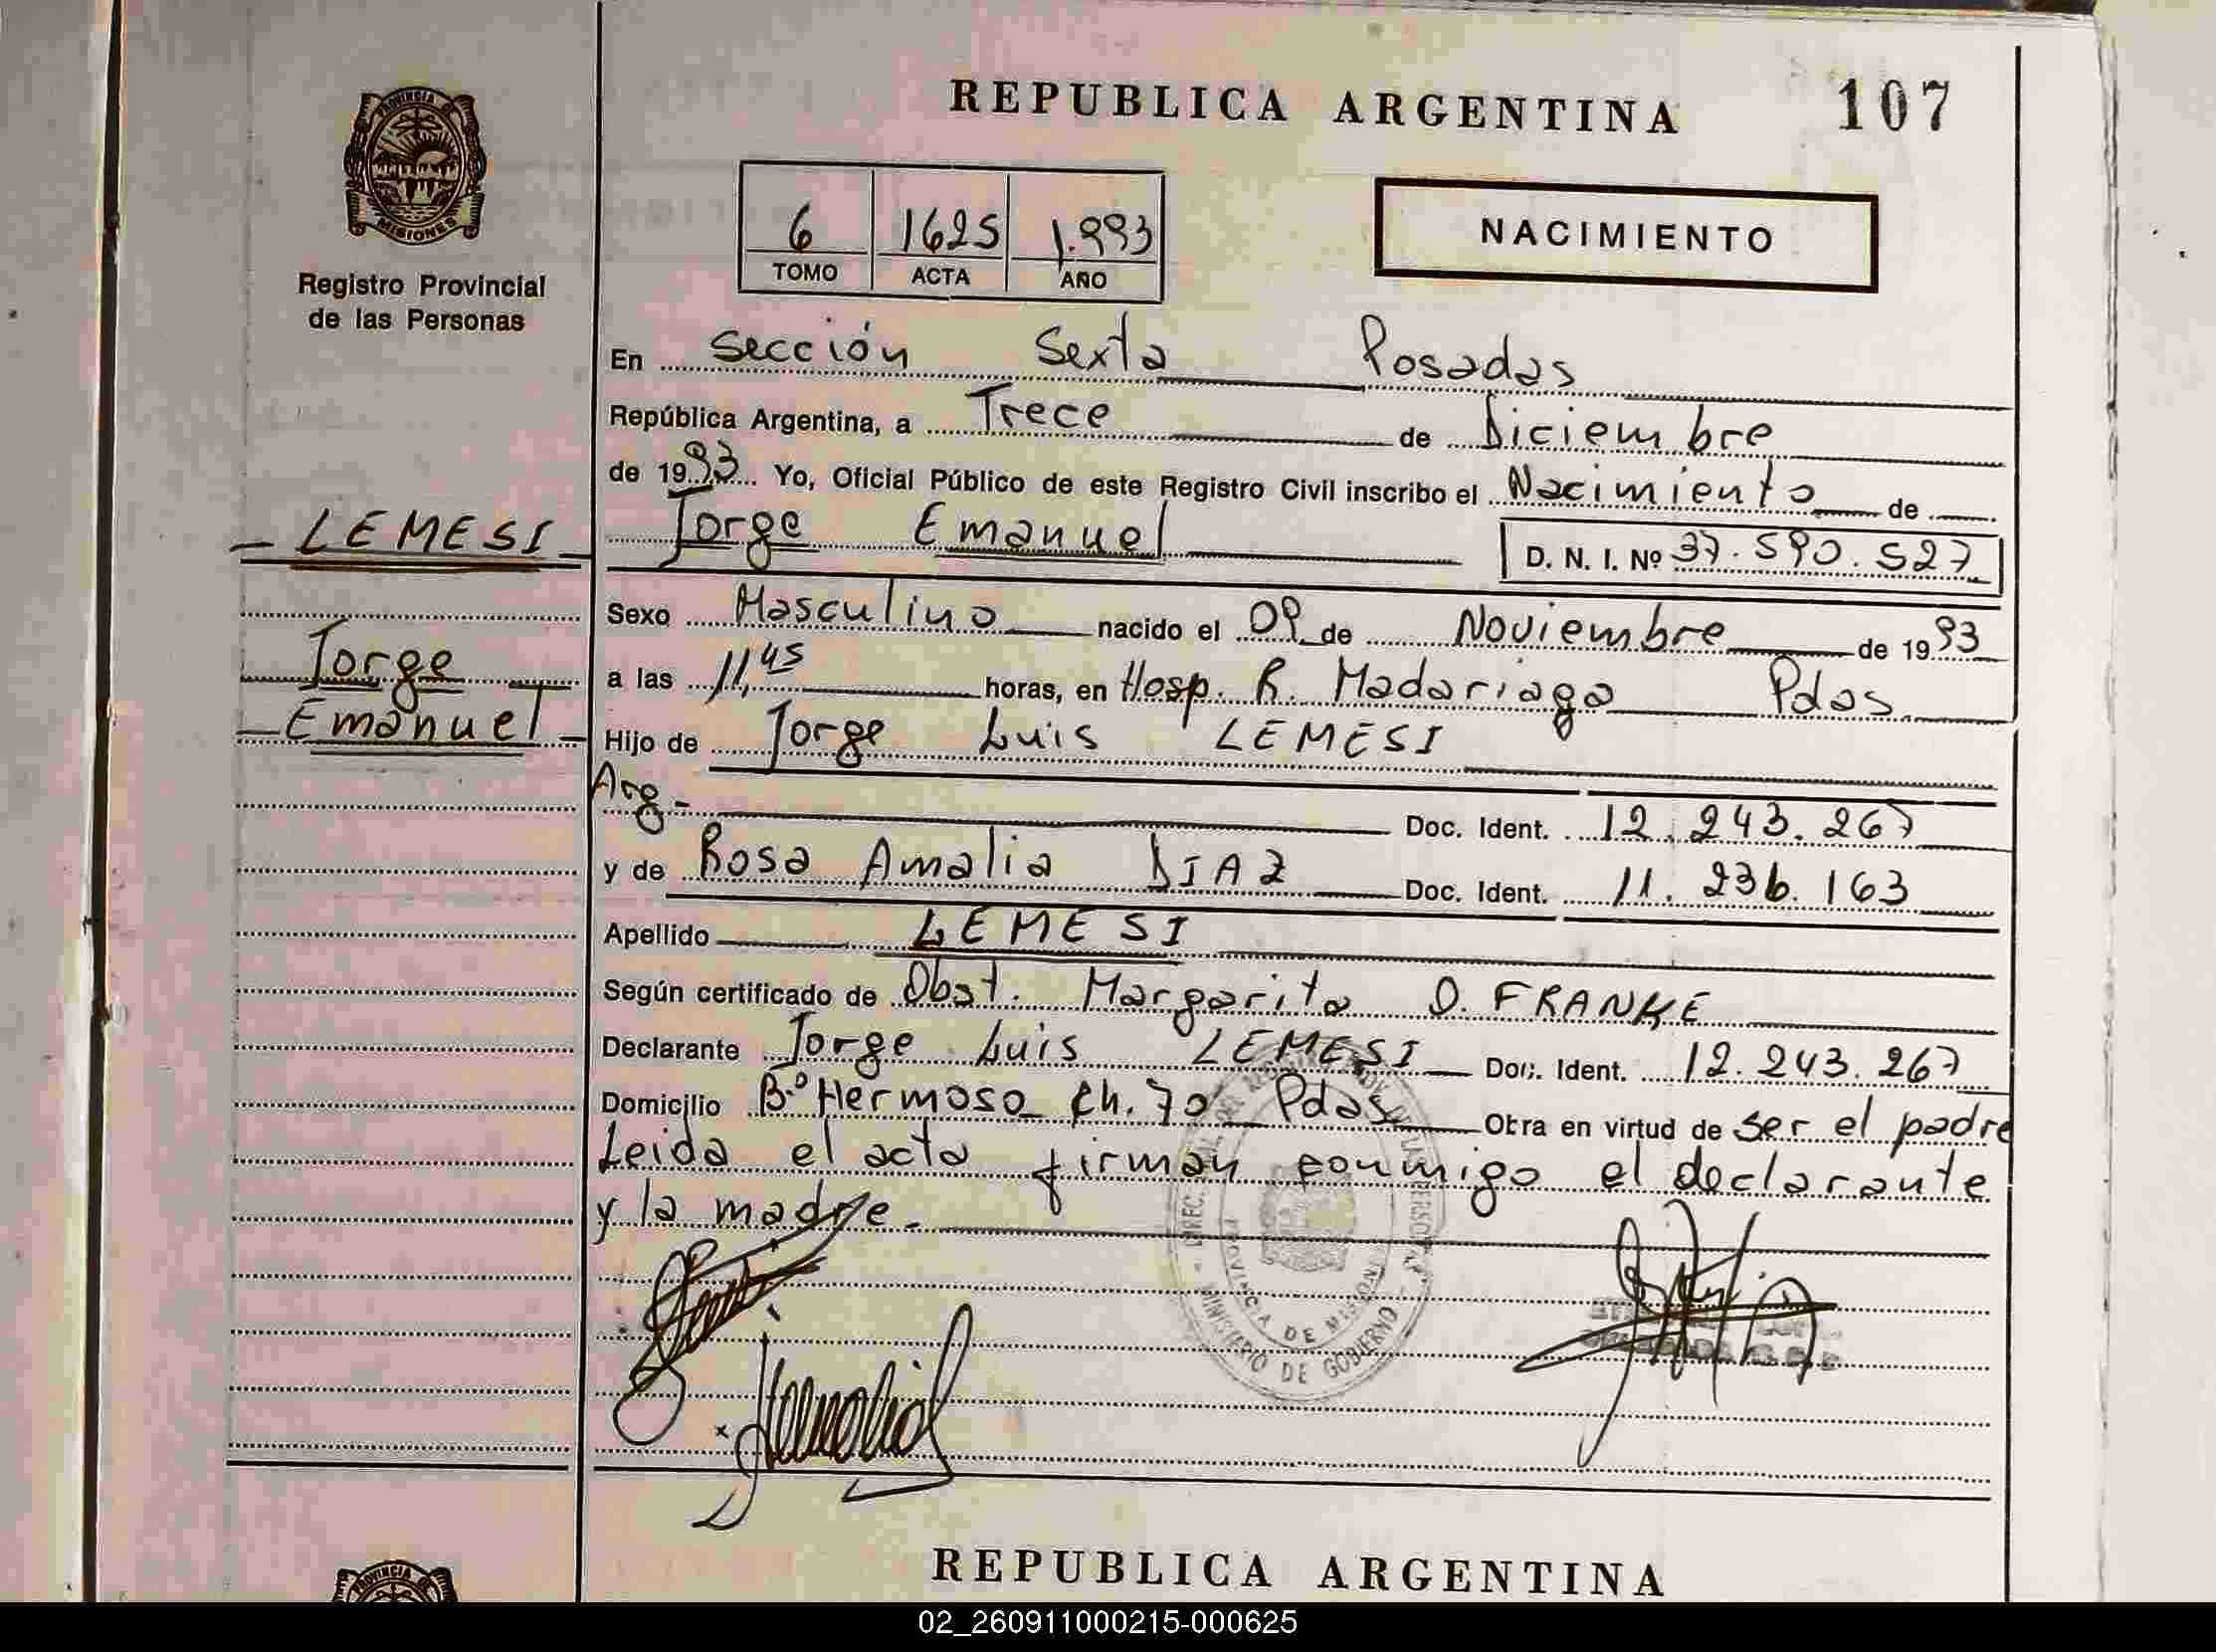 REPUBLICA ARGENTINA 107
PROVINCIA DE
MISIONES
Registro Provincial
de las Personas
6 1625 1.993
TOMO ACTA AÑO
NACIMIENTO
En Sección Sexta Posadas
República Argentina, a Trece de Diciembre
de 1993 Yo, Oficial Público de este Registro Civil inscribo el Nacimiento de
LEMESI
Jorge Emanuel D. N. I. Nº 37.590.527
Sexo Masculino nacido el 09 de Noviembre de 1993
Jorge
Emanuel
a las 11,45 horas, en Hosp. R. Madariaga Pdas.
Hijo de Jorge Luis LEMESI
Arg- Doc. Ident. 12.243.267
y de Rosa Amalia DIAZ Doc. Ident. 11.236.163
Apellido LEMESI
Según certificado de Obst. Margarita O. FRANKE
Declarante Jorge Luis LEMESI Doc. Ident. 12.243.267
Domicilio B.º Hermoso Ch. 70 Pdas Obra en virtud de ser el padre
Leida el acta firman conmigo el declarante
y la madre.-
PROVINCIA DE MISIONES
MINISTERIO DE GOBIERNO
REPUBLICA ARGENTINA
PROVINCIA
02_260911000215-000625